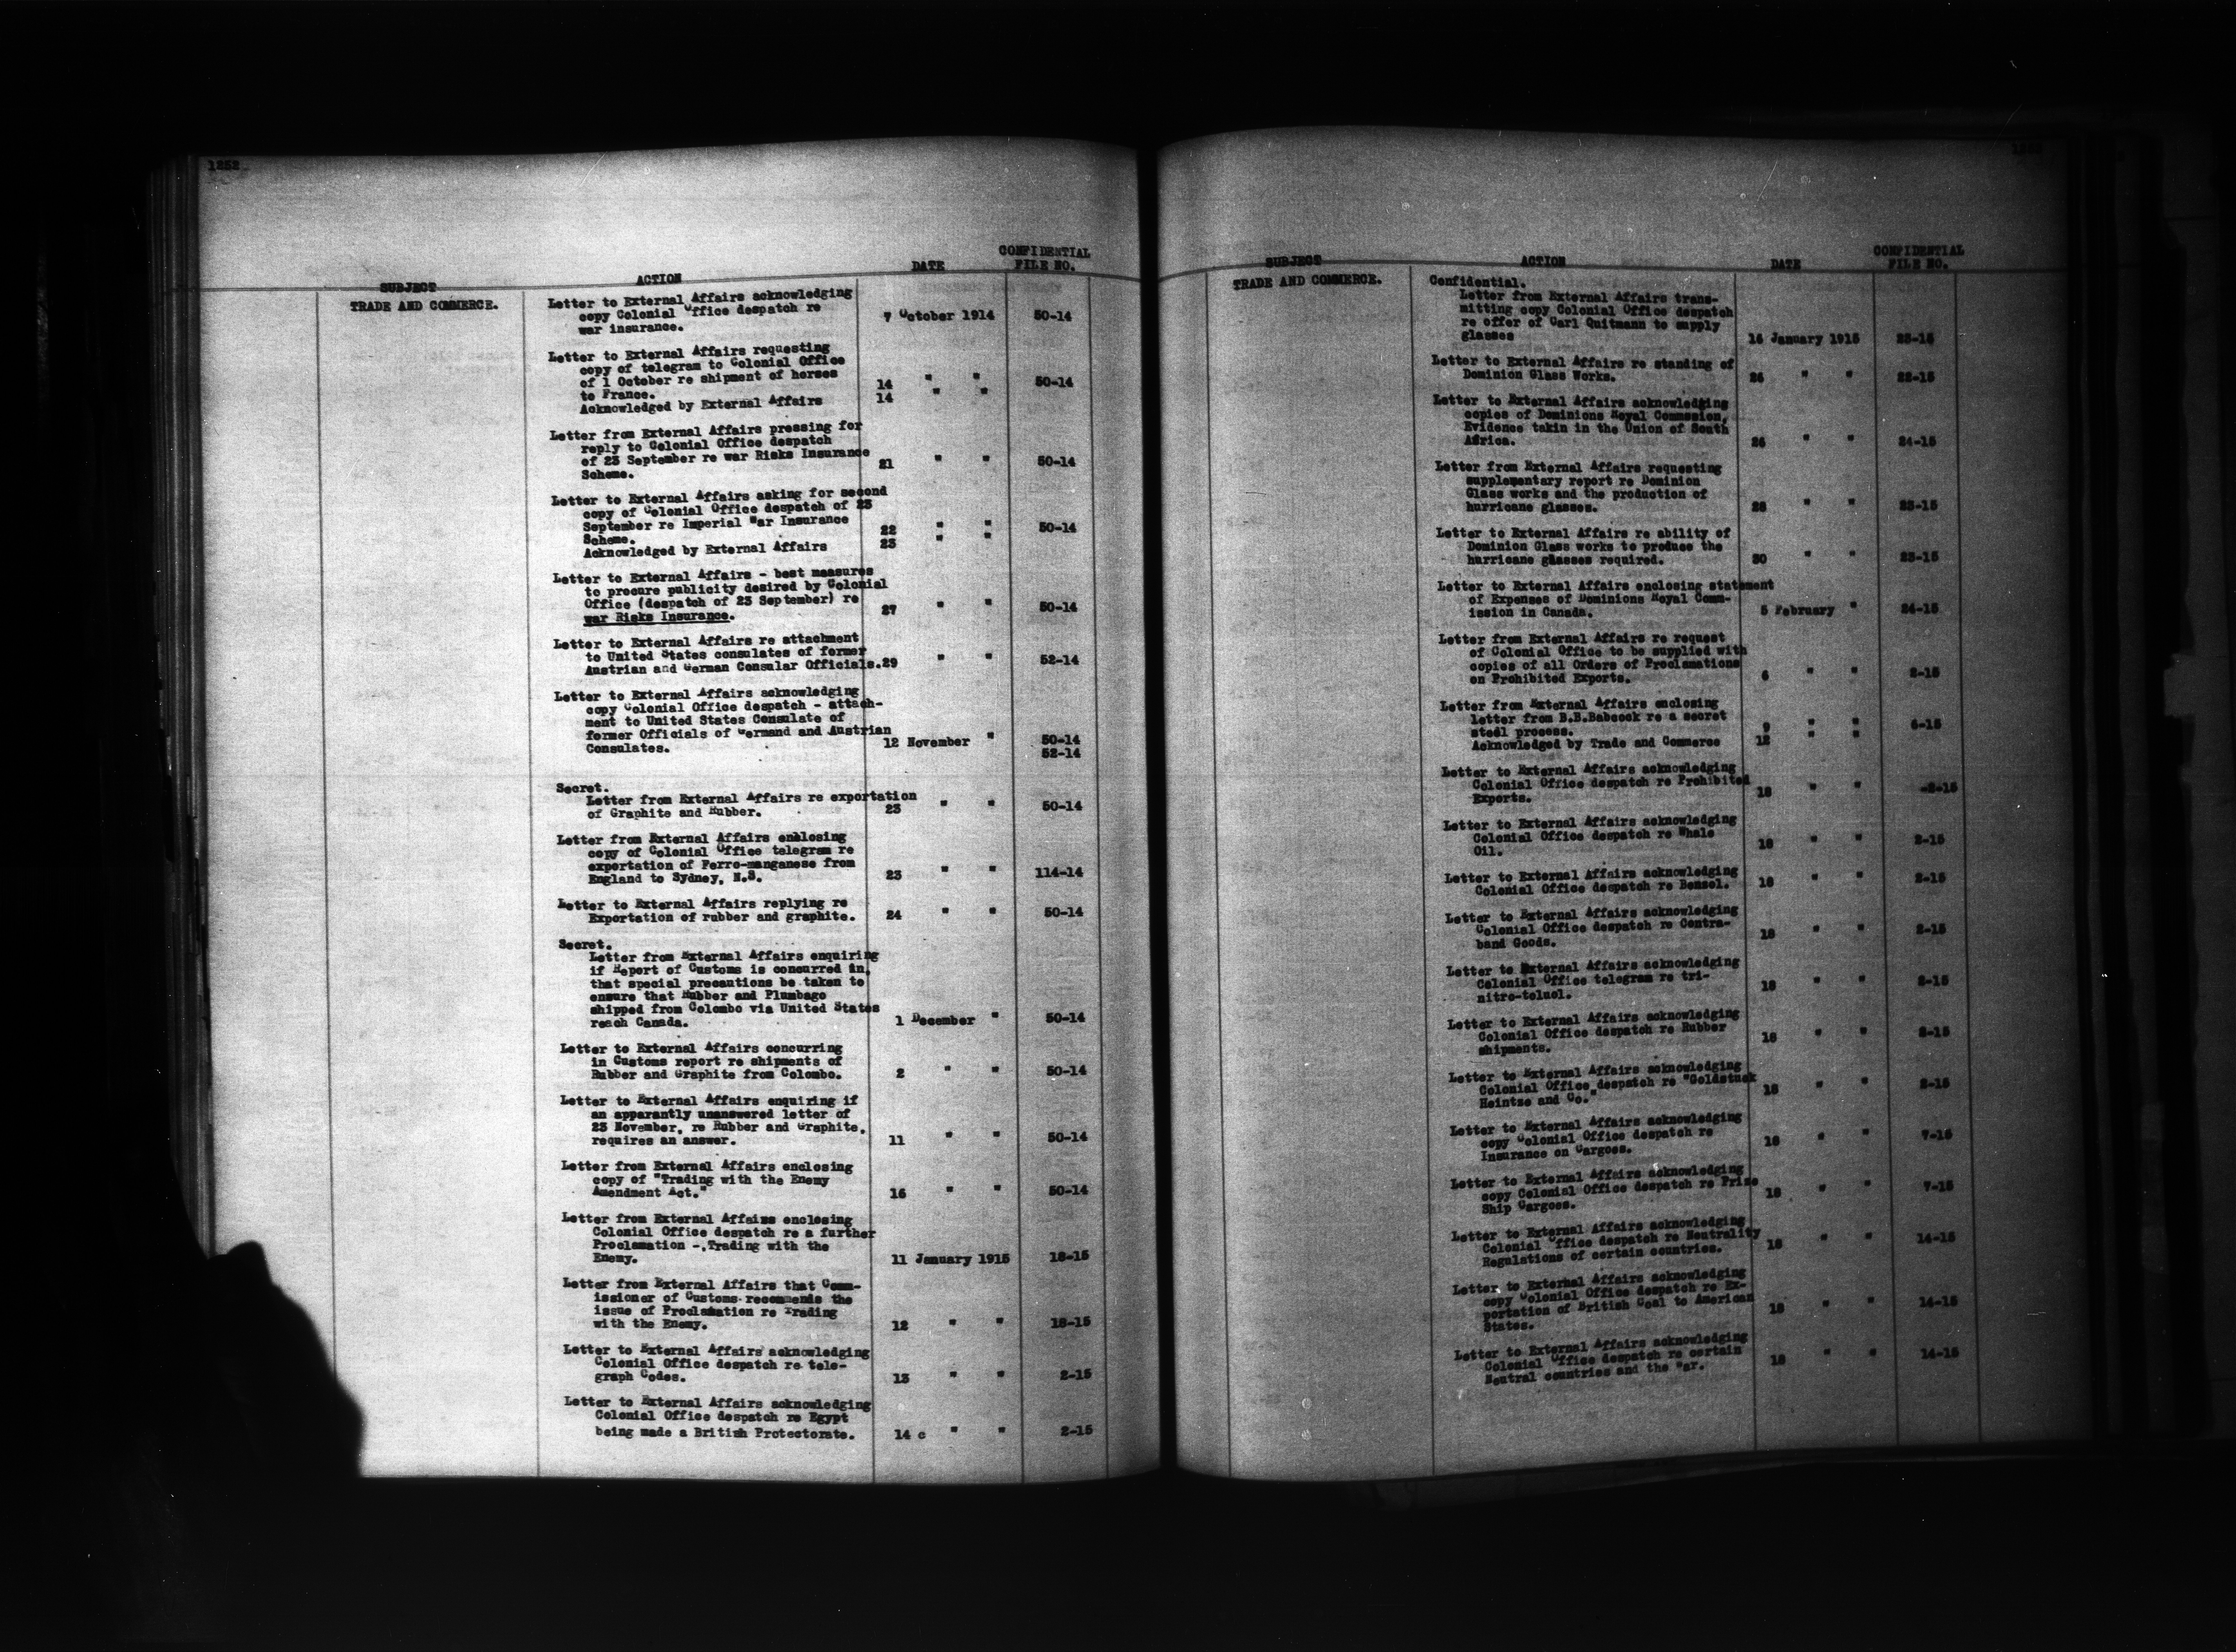 1252
SUBJECT ACTION DATE CONFIDENTIAL FILE NO.
TRADE AND COMMERCE.
Letter to External Affairs acknowledging
copy Colonial Office despatch re
war insurance. 7 October 1914 50-14
Letter to External Affairs requesting
copy of telegram to Colonial Office
of 1 October re shipment of horses
to France. 14 " " 50-14
Acknowledged by External Affairs 14 " "
Letter from External Affairs pressing for
reply to Colonial Office despatch
of 23 September re war Risks Insurance
Scheme. 21 " " 50-14
Letter to External Affairs asking for second
copy of Colonial Office despatch of 23
September re Imperial War Insurance
Scheme. 22 " " 50-14
Acknowledged by External Affairs 23 " "
Letter to External Affairs - best measures
to procure publicity desired by Colonial
Office (despatch of 23 September) re
war Risks Insurance. 27 " " 50-14
Letter to External Affairs re attachment
to United States consulates of former
Austrian and German Consular Officials. 29 " " 52-14
Letter to External Affairs acknowledging
copy Colonial Office despatch - attach-
ment to United States Consulate of
former Officials of Germand and Austrian
Consulates. 12 November " 50-14
52-14
Secret.
Letter from External Affairs re exportation
of Graphite and Rubber. 23 " " 50-14
Letter from External Affairs enclosing
copy of Colonial Office telegram re
exportation of Ferro-manganese from
England to Sydney, N.S. 23 " " 114-14
Letter to External Affairs replying re
Exportation of rubber and graphite. 24 " " 50-14
Secret.
Letter from External Affairs enquiring
if Report of Customs is concurred in,
that special precautions be taken to
ensure that Rubber and Plumbago
shipped from Colombo via United States
reach Canada. 1 December " 50-14
Letter to External Affairs concurring
in Customs report re shipments of
Rubber and Graphite from Colombo. 2 " " 50-14
Letter to External Affairs enquiring if
an apparantly unanswered letter of
23 November, re Rubber and Graphite,
requires an answer. 11 " " 50-14
Letter from External Affairs enclosing
copy of "Trading with the Enemy
Amendment Act." 16 " " 50-14
Letter from External Affairs enclosing
Colonial Office despatch re a further
Proclamation -, Trading with the
Enemy. 11 January 1915 18-15
Letter from External Affairs that Comm-
issioner of Customs recommends the
issue of Proclamation re Trading
with the Enemy. 12 " " 18-15
Letter to External Affairs acknowledging
Colonial Office despatch re tele-
graph Codes. 13 " " 2-15
Letter to External Affairs acknowledging
Colonial Office despatch re Egypt
being made a British Protectorate. 14 c " " 2-15
SUBJECT ACTION DATE CONFIDENTIAL FILE NO.
TRADE AND COMMERCE.
Confidential.
Letter from External Affairs trans-
mitting copy Colonial Office despatch
re offer of Carl Quitmann to supply
glasses 16 January 1915 23-15
Letter to External Affairs re standing of
Dominion Glass Works. 26 " " 22-15
Letter to External Affairs acknowledging
copies of Dominions Royal Commssion,
Evidence takin in the Union of South
Africa. 26 " " 24-15
Letter from External Affairs requesting
supplementary report re Dominion
Glass works and the production of
hurricane glasses. 28 " " 23-15
Letter to External Affairs re ability of
Dominion Glass works to produce the
hurricane glasses required. 30 " " 23-15
Letter to External Affairs enclosing statement
of Expenses of Dominions Royal Comm-
ission in Canada. 5 February " 24-15
Letter from External Affairs re request
of Colonial Office to be supplied with
copies of all Orders of Proclamations
on Prohibited Exports. 6 " " 2-15
Letter from External Affairs enclosing
letter from B.B.Babcock re a secret
steel process. 9 " " 6-15
Acknowledged by Trade and Commerce 12 " "
Letter to External Affairs acknowledging
Colonial Office despatch re Prohibited
Exports. 18 " " -2-15
Letter to External Affairs acknowledging
Colonial Office despatch re Whale
Oil. 18 " " 2-15
Letter to External Affairs acknowledging
Colonial Office despatch re Benzol. 18 " " 2-15
Letter to External Affairs acknowledging
Colonial Office despatch re Contra-
band Goods. 18 " " 2-15
Letter to External Affairs acknowledging
Colonial Office telegram re tri-
nitro-toluol. 18 " " 2-15
Letter to External Affairs acknowledging
Colonial Office despatch re Rubber
shipments. 18 " " 2-15
Letter to External Affairs acknowledging
Colonial Office despatch re "Goldstuck
Heintze and Co." 18 " " 2-15
Letter to External Affairs acknowledging
copy Colonial Office despatch re
Insurance on Cargoes. 18 " " 7-15
Letter to External Affairs acknowledging
copy Colonial Office despatch re Prize
Ship Cargoes. 18 " " 7-15
Letter to External Affairs acknowledging
Colonial Office despatch re Neutrality
Regulations of certain countries. 18 " " 14-15
Letter to External Affairs acknowledging
copy Colonial Office despatch re Ex-
portation of British Coal to American
States. 18 " " 14-15
Letter to External Affairs acknowledging
Colonial Office despatch re certain
Neutral countries and the War. 18 " " 14-15